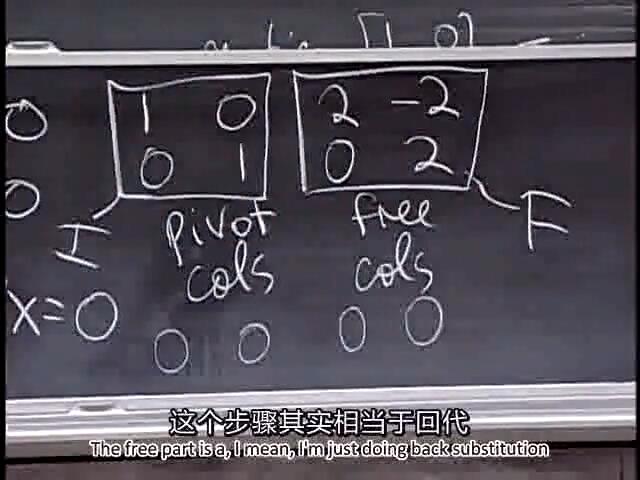 [1 0]
0 1 0 2 -2
0 0 1 0 2
I pivot cols free cols F
x=0 0 0 0 0
这个步骤其实相当于回代
The free part is a, I mean, I'm just doing back substitution